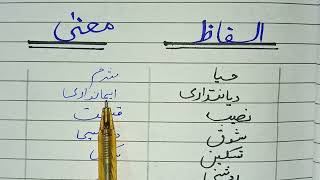 الفاظ معنی
حیا شرم
دیانتداری ایمانداری
نصیب
شوق
تسکین
روشنی